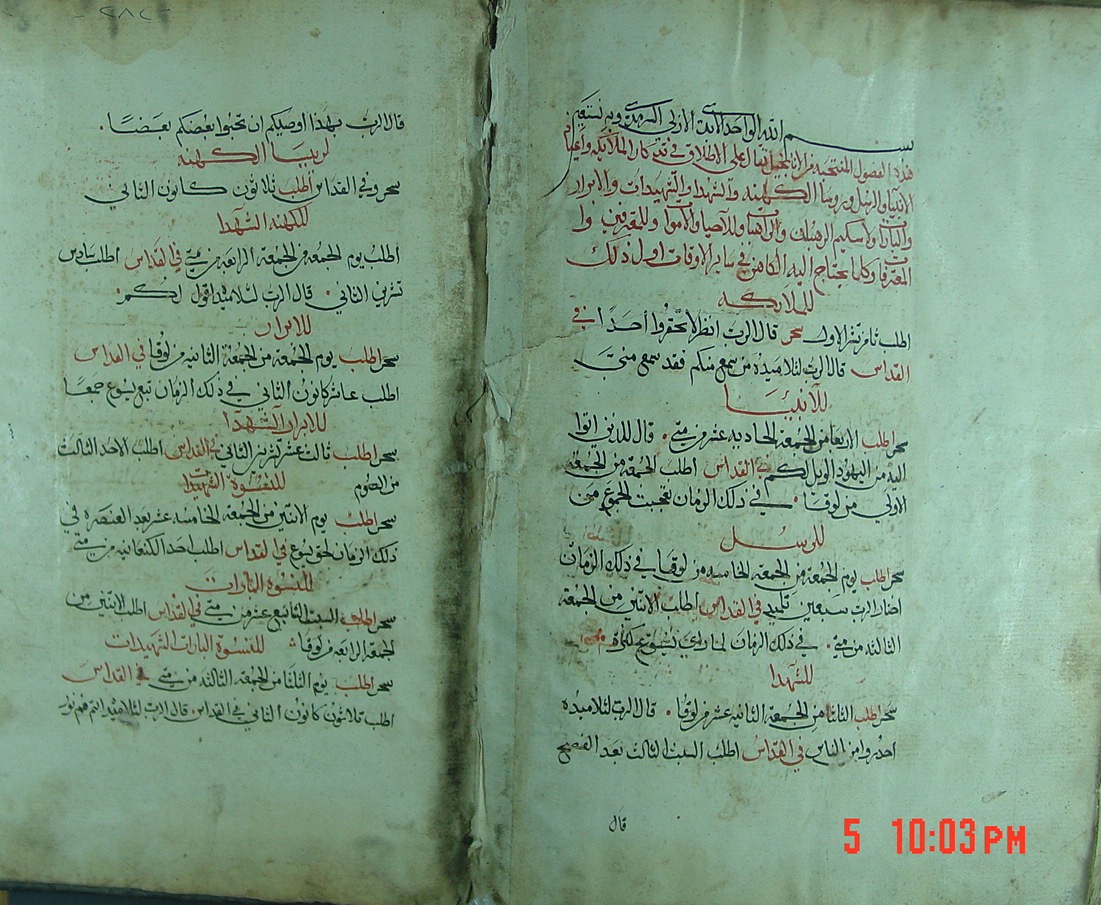 بسم الله الواحد الابدي الازلي السرمدي وبه نستعين
هذه الفصول المنتخبه من الانجيل تقال علي الاطلاق في تذكار الملائكه واعياد
الانبيا والرسل وروسا الكهنه والشهدا والشهيدات والابرار
والبارات ولاسكيم الرهبان والراهبات وللاحيا والاموات وللمعترفين وا
لمعترفات وكلما يحتاج اليه الكاهن في ساير الاوقات اول ذلك
للملايكه
اطلب ثامن تشرين الاول سحر قال الرب انظروا لا تحقروا احدا في
القداس قال الرب لتلاميذه من سمع منكم فقد سمع مني
للانبيا
سحر اطلب الاربعا من الجمعة الحاديه عشر من متي . قال للذين اتوا
اليه من اليهود الويل لكم في القداس اطلب الجمعة من الجمعة
الاولي من لوقا . في ذلك الزمان تعجبت الجموع من
للرسل
سحر اطلب يوم الجمعة من الجمعه الخامسه من لوقا في ذلك الزمان
اختار الرب سبعين تلميذ في القداس اطلب الاثنين من الجمعة
الثالثه من متي . في ذلك الزمان لما راي يسوع كثرة
للشهدا
سحر اطلب الثلثا من الجمعة الثانيه عشر من لوقا . قال الرب لتلاميذه
احذروا من الناس في القداس اطلب السبت الثالث بعد الفصح
قال
قال الرب بهذا اوصيكم ان تحبوا بعضكم بعضًا .
لريسا الكهنه
سحر وفي القداس اطلب ثلاثون كانون الثاني
للكهنه الشهدا
اطلب يوم الجمعة من الجمعة الرابعه من متي في القداس اطلب سادس
تشرين الثاني . قال الرب لتلاميذه اقول لكم .
للابرار
سحر اطلب يوم الجمعة من الجمعة الثانيه من لوقا في القداس
اطلب عاشر كانون الثاني في ذلك الزمان تبع يسوع جمعًا
للابرار الشهدا
سحر اطلب ثالث عشر تشرين الثاني في القداس اطلب الاحد الثالث
من الصوم للنسوة الشهيدات
سحر اطلب يوم الاثنين من الجمعة الخامسه عشر بعد العنصره في
ذلك الزمان لحق يسوع في القداس اطلب احد الكنعانيه من متي
للنسوة البارات
سحر اطلب السبت التاسع عشر من متي في القداس اطلب الاثنين من
الجمعة الرابعه من لوقا للنسوة البارات الشهيدات
سحر اطلب يوم الثلثا من الجمعة الثالثه من متي في القداس
اطلب ثلاثون كانون الثاني في القداس قال الرب لتلاميذه انتم هم نور
5 10:03 PM